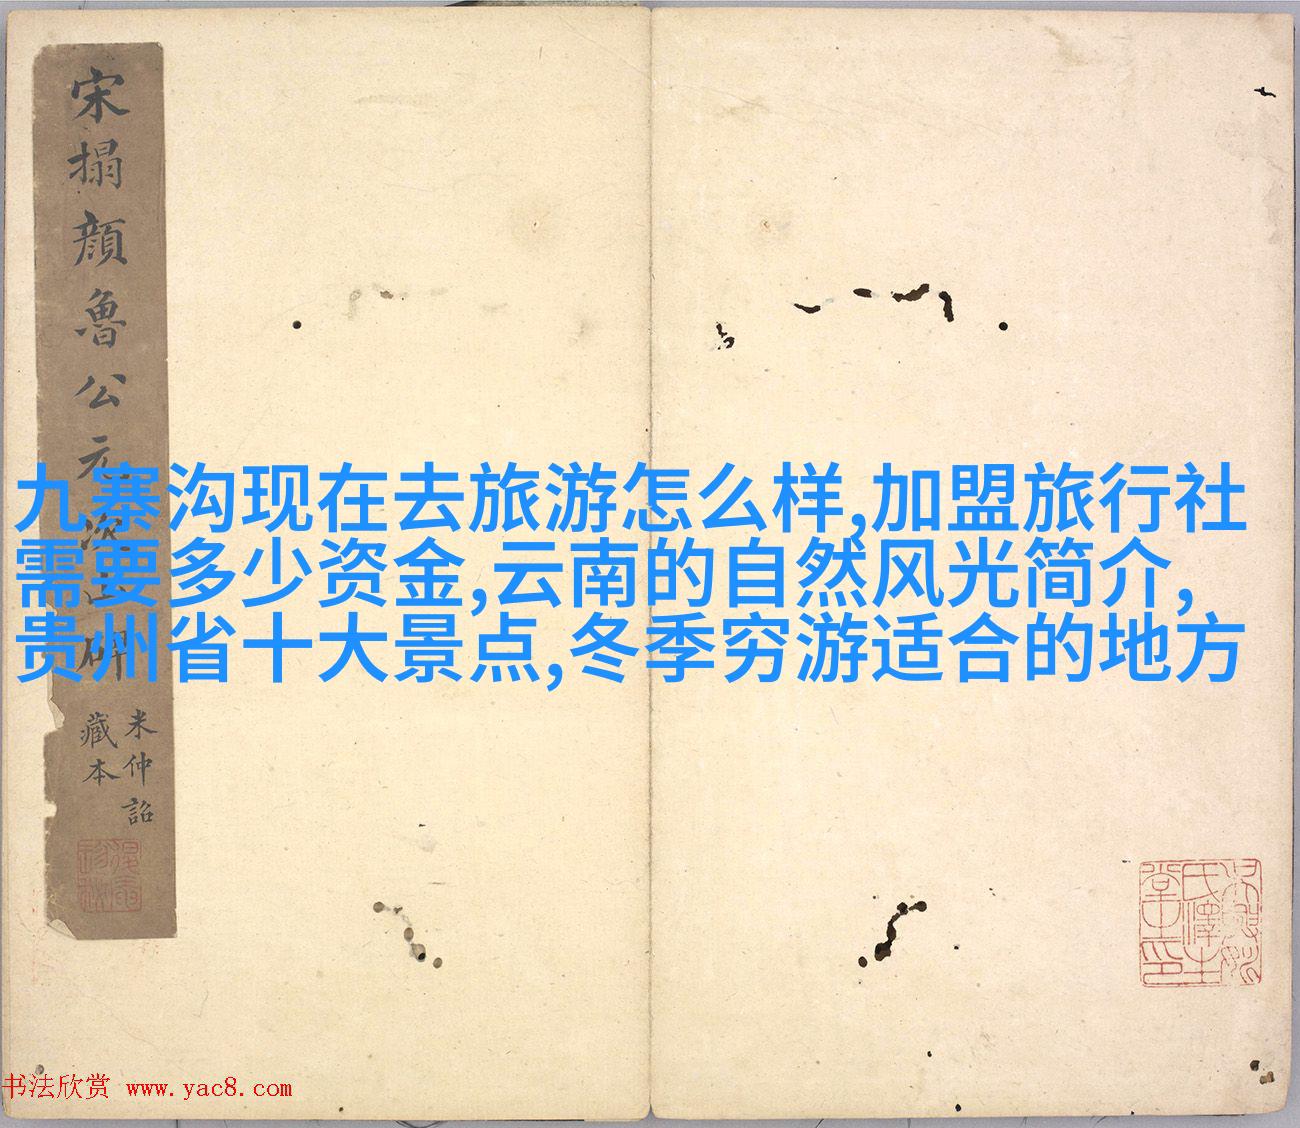 宋搨顔魯公元次山碑
米仲詔
藏本
九寨沟现在去旅游怎么样,加盟旅行社
需要多少资金,云南的自然风光简介,
贵州省十大景点,冬季穷游适合的地方
书法欣赏 www.yac8.com